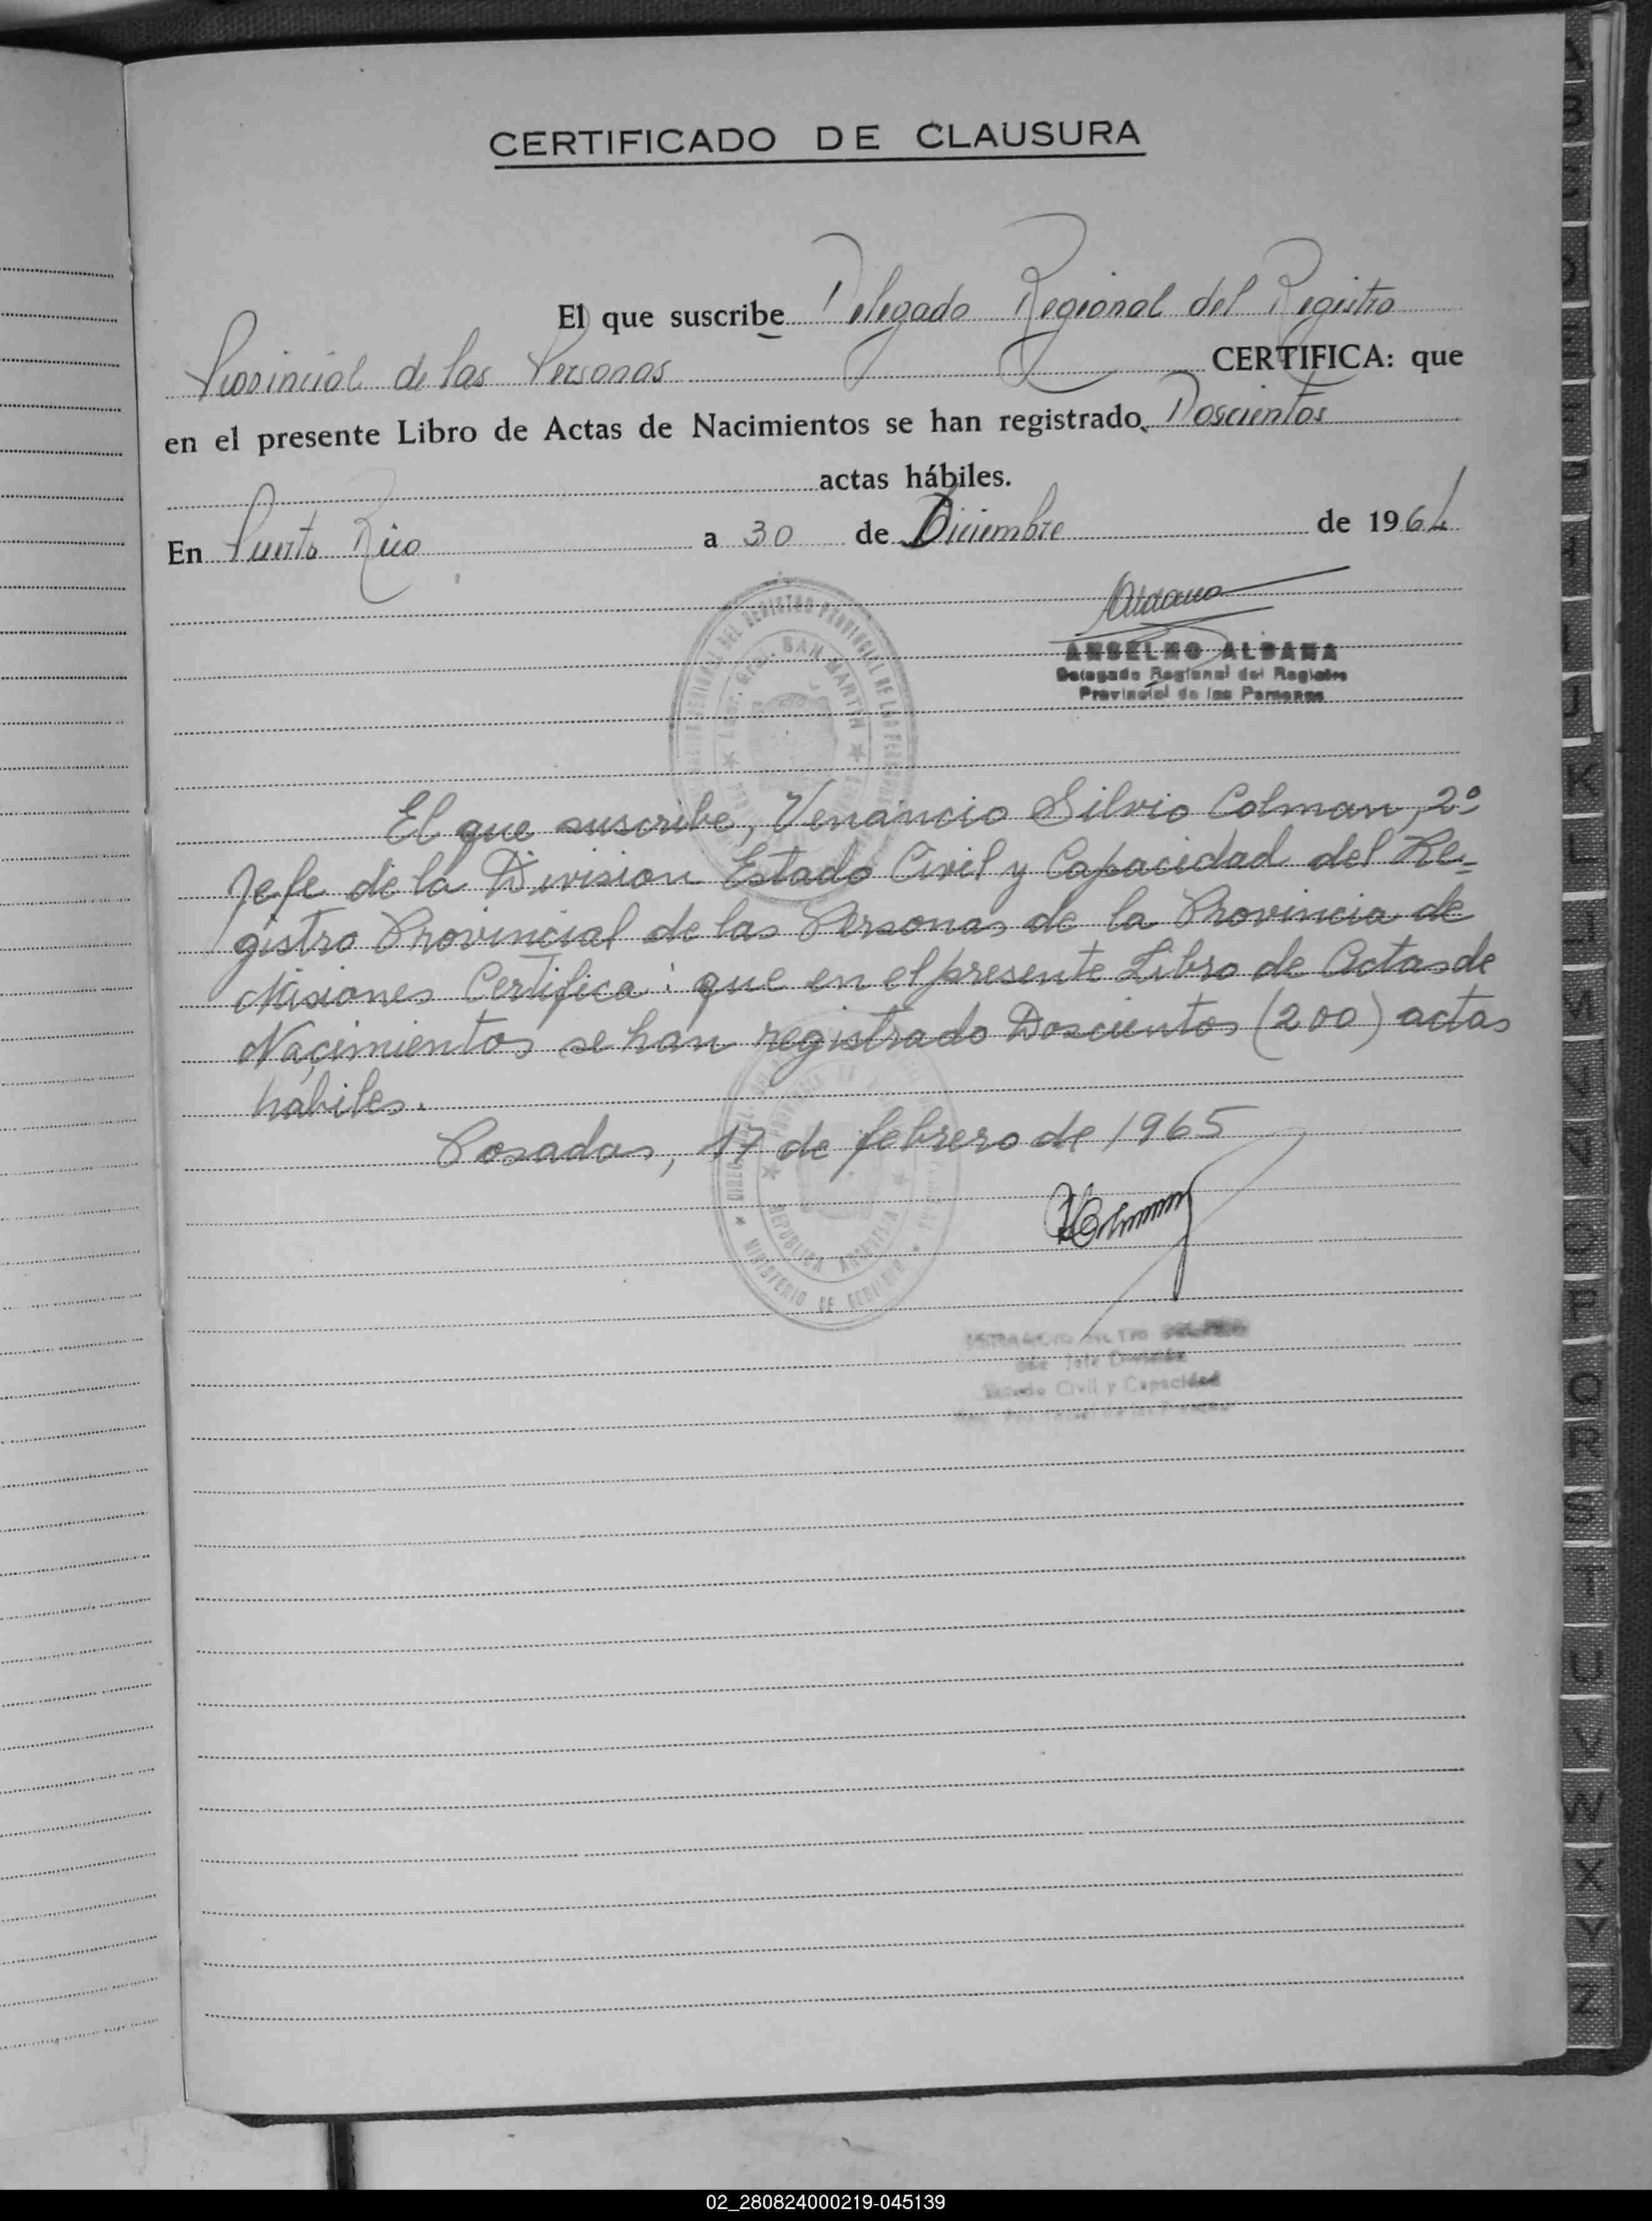 CERTIFICADO DE CLAUSURA
El que suscribe Delegado Regional del Registro
Provincial de las Personas CERTIFICA: que
en el presente Libro de Actas de Nacimientos se han registrado Doscientos
actas hábiles.
En Puerto Rico a 30 de Diciembre de 1964
Aldana
ANSELMO ALDANA
Delegado Regional del Registro
Provincial de las Personas
El que suscribe, Venancio Silvio Colman, 2º
Jefe de la Division Estado Civil y Capacidad del Re-
gistro Provincial de las Personas de la Provincia de
Misiones Certifica: que en el presente Libro de Actas de
Nacimientos se han registrado Doscientos (200) actas
hábiles.
Posadas, 17 de febrero de 1965
Colman
Jefe División
Estado Civil y Capacidad
REPUBLICA ARGENTINA
MINISTERIO DE GOBIERNO
SAN MARTIN
A
B
C
D
E
F
G
H
I
J
K
L
LL
M
N
Ñ
O
P
Q
R
S
T
U
V
W
X
Y
Z
02_280824000219-045139